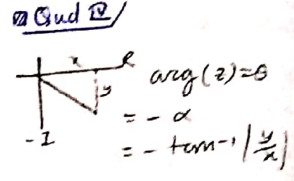 Quad IV
x R
y
-I
arg(z)=θ
= - α
= - tan⁻¹ |y/x|